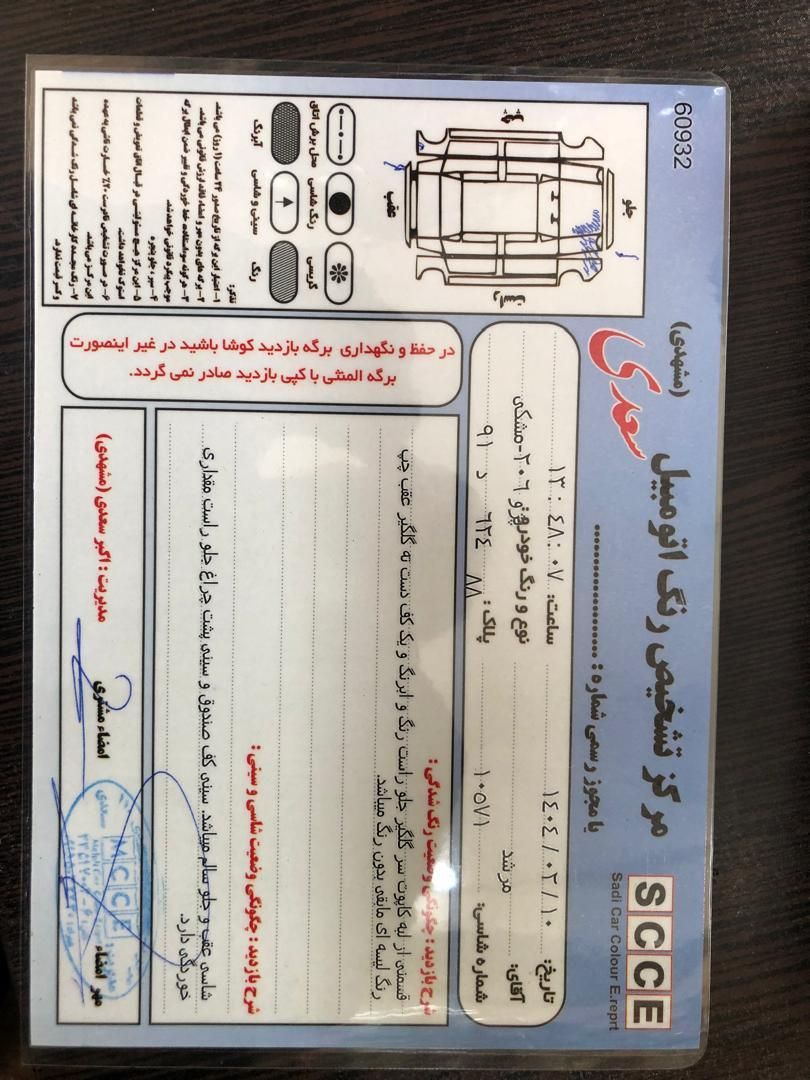 60932
SCCE
Sadi Car Colour E.reprt
مرکز تشخیص رنگ اتومبیل
سعدی
(مشهدی)
با مجوز رسمی شماره : ....................
تاریخ: ۱۴۰۴/۰۲/۱۰ ساعت: ۱۳:۴۸:۰۷
آقای: مرشد نوع و رنگ خودرو: پژو ۲۰۶-مشکی
شماره شاسی: ۱۰۵۷۱ پلاک: ۹۱ د ۶۲۴ ۸۸
جلو
عقب
راست
گریسی
رنگ شاسی
محل برش اتاق
رنگ
سینی و شاسی
آبرنگ
تذکر:
در حفظ و نگهداری برگه بازدید کوشا باشید در غیر اینصورت
برگه المثنی با کپی بازدید صادر نمی گردد.
شرح بازدید : چگونگی وضعیت رنگ شدگی :
قسمتی از لبه کاپوت سر گلگیر جلو راست رنگ و ابرنگ و یک کف دست ته گلگیر عقب چپ
رنگ لیسه ای مابقی بدون رنگ میباشد.
شرح بازدید : چگونگی وضعیت شاسی و سینی :
شاسی عقب و جلو سالم میباشد. سینی کف صندوق و سینی پشت چراغ جلو راست مقداری
خوردگی دارد.
مدیریت : اکبر سعدی (مشهدی)
امضاء مشتری
مهر امضاء